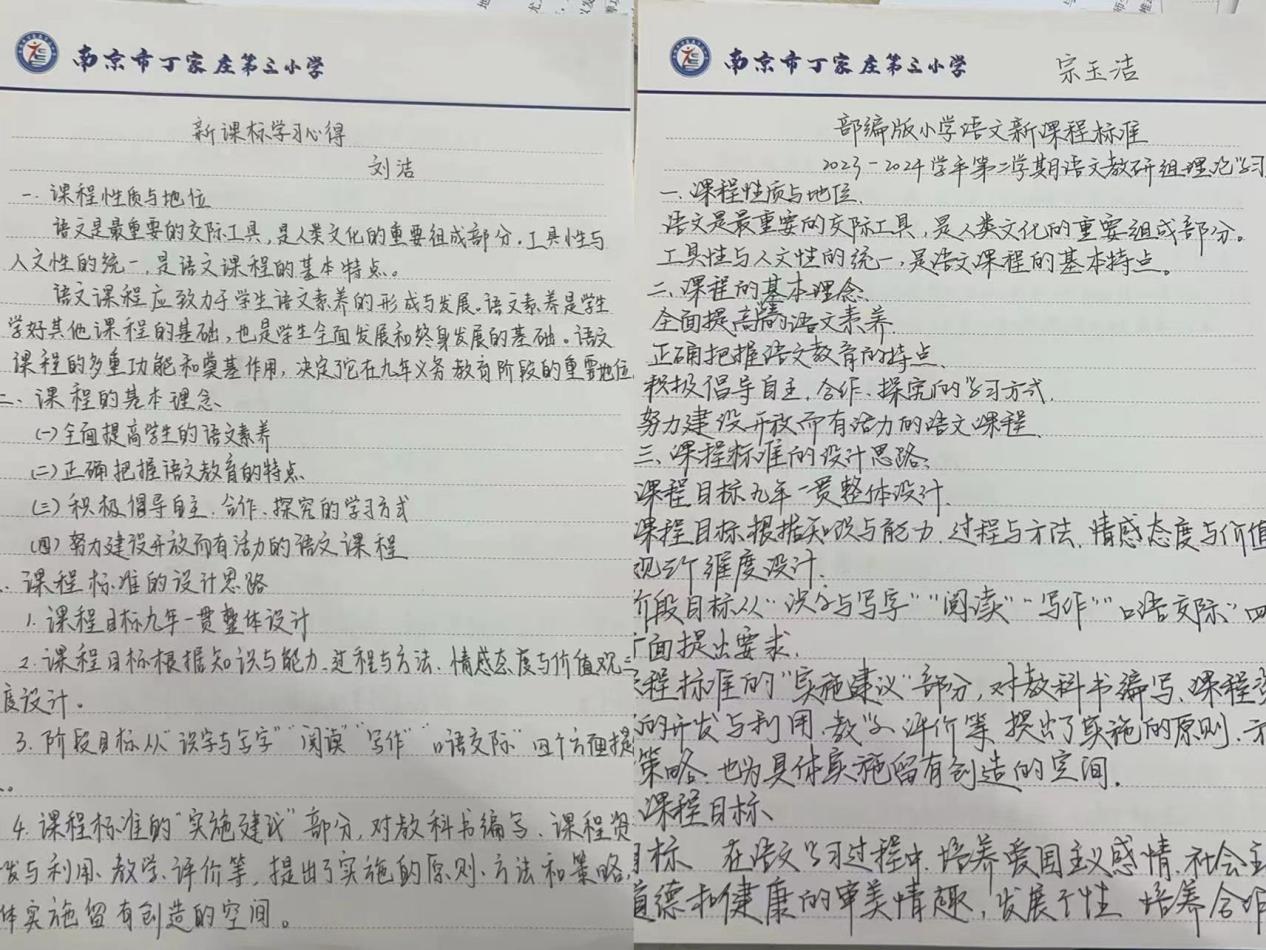 南京市丁家庄第三小学
新课标学习心得
刘洁
一、课程性质与地位
语文是最重要的交际工具,是人类文化的重要组成部分。工具性与
人文性的统一,是语文课程的基本特点。
语文课程应致力于学生语文素养的形成与发展。语文素养是学生
学好其他课程的基础,也是学生全面发展和终身发展的基础。语文
课程的多重功能和奠基作用,决定了它在九年义务教育阶段的重要地位
二、课程的基本理念
(一)全面提高学生的语文素养
(二)正确把握语文教育的特点
(三)积极倡导自主、合作、探究的学习方式
(四)努力建设开放而有活力的语文课程
、课程标准的设计思路
1.课程目标九年一贯整体设计
2.课程目标根据知识与能力、过程与方法、情感态度与价值观三
度设计。
3.阶段目标从“识字与写字”“阅读”“写作”“口语交际”四个方面提
。
4.课程标准的“实施建议”部分,对教科书编写、课程资
发与利用、教学、评价等,提出了实施的原则、方法和策略,
体实施留有创造的空间。
南京市丁家庄第三小学
宗玉洁
部编版小学语文新课程标准
2023-2024学年第二学期语文教研组理论学习
一、课程性质与地位、
语文是最重要的交际工具,是人类文化的重要组成部分。
工具性与人文性的统一,是语文课程的基本特点。
二、课程的基本理念、
全面提高学生的语文素养
正确把握语文教育的特点、
积极倡导自主、合作、探究的学习方式、
努力建设开放而有活力的语文课程、
三、课程标准的设计思路:
课程目标九年一贯整体设计、
课程目标根据知识与能力、过程与方法、情感态度与价值
观三个维度设计.
阶段目标从“识字与写字”“阅读”“写作”“口语交际”四
面提出要求.
程标准的“实施建议”部分,对教科书编写、课程资
的开发与利用、教学、评价等,提出了实施的原则、方
策略、也为具体实施留有创造的空间.
课程目标
目标、在语文学习过程中、培养爱国主义感情、社会主
道德和健康的审美情趣,发展个性、培养合作